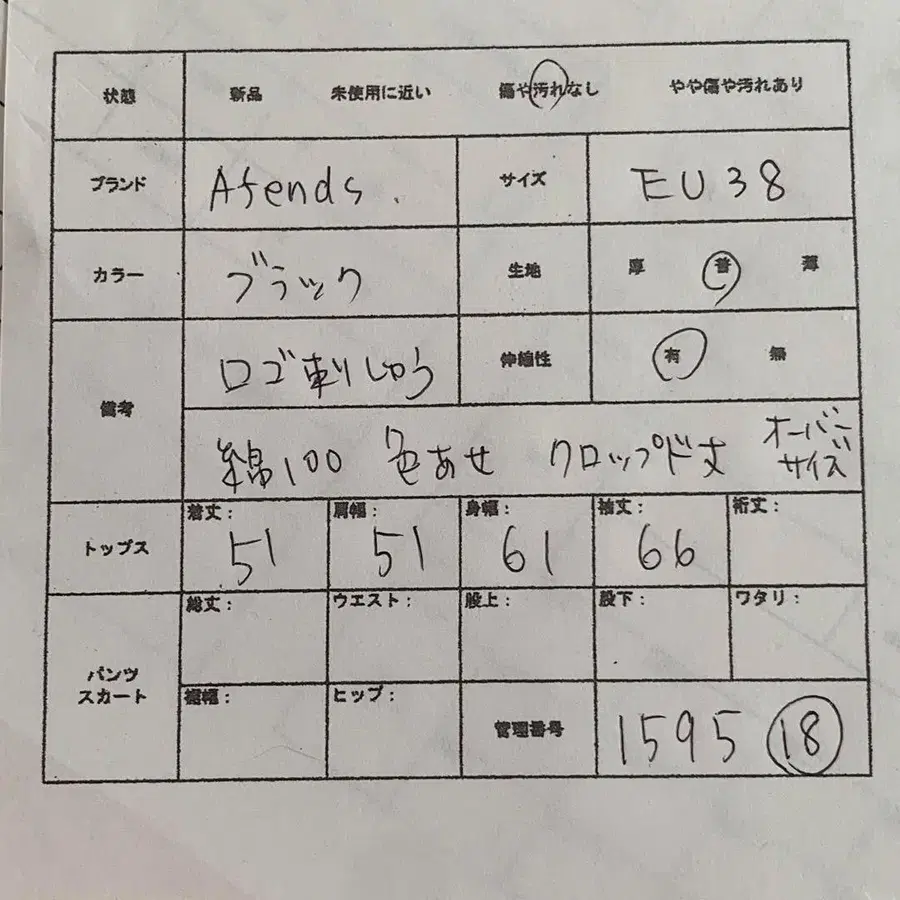 状態 新品 未使用に近い 傷や汚れなし やや傷や汚れあり
ブランド Afends. サイズ EU38
カラー ブラック 生地 厚 普 薄
備考 ロゴ刺しゅう 伸縮性 有 無
綿100 色あせ クロップド丈 オーバーサイズ
トップス 着丈: 51 肩幅: 51 身幅: 61 袖丈: 66 裄丈:
パンツ
スカート
総丈: ウエスト: 股上: 股下: ワタリ:
裾幅: ヒップ: 管理番号 1595 18